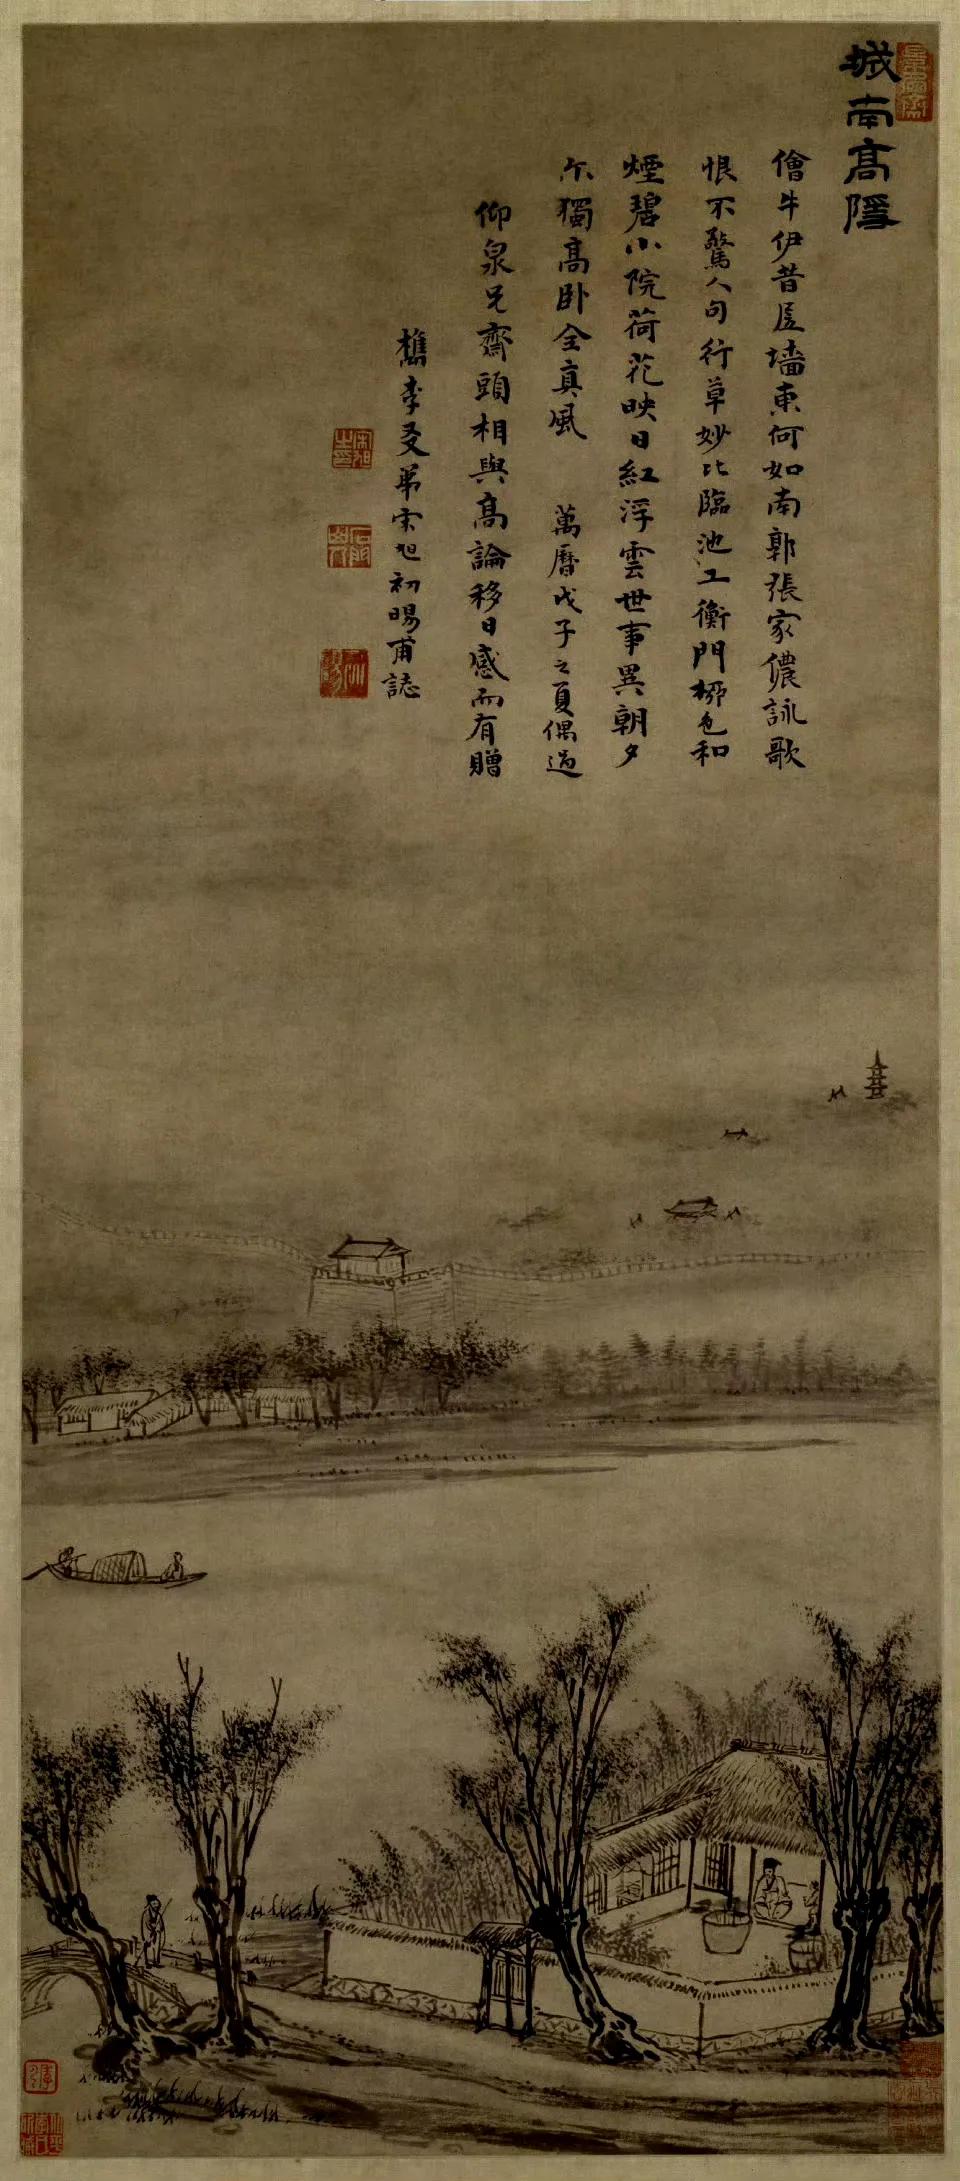 城南高隱
儈牛伊昔居墻東何如南郭張家儂詠歌
恨不驚人句行草妙比臨池工衡門柳色和
煙碧小院荷花映日紅浮雲世事異朝夕
尒獨高卧全真風 萬曆戊子之夏偶過
仰泉兄齋頭相與高論移日感而有贈
檇李友弟宋旭初暘甫誌
宋旭之印
初暘